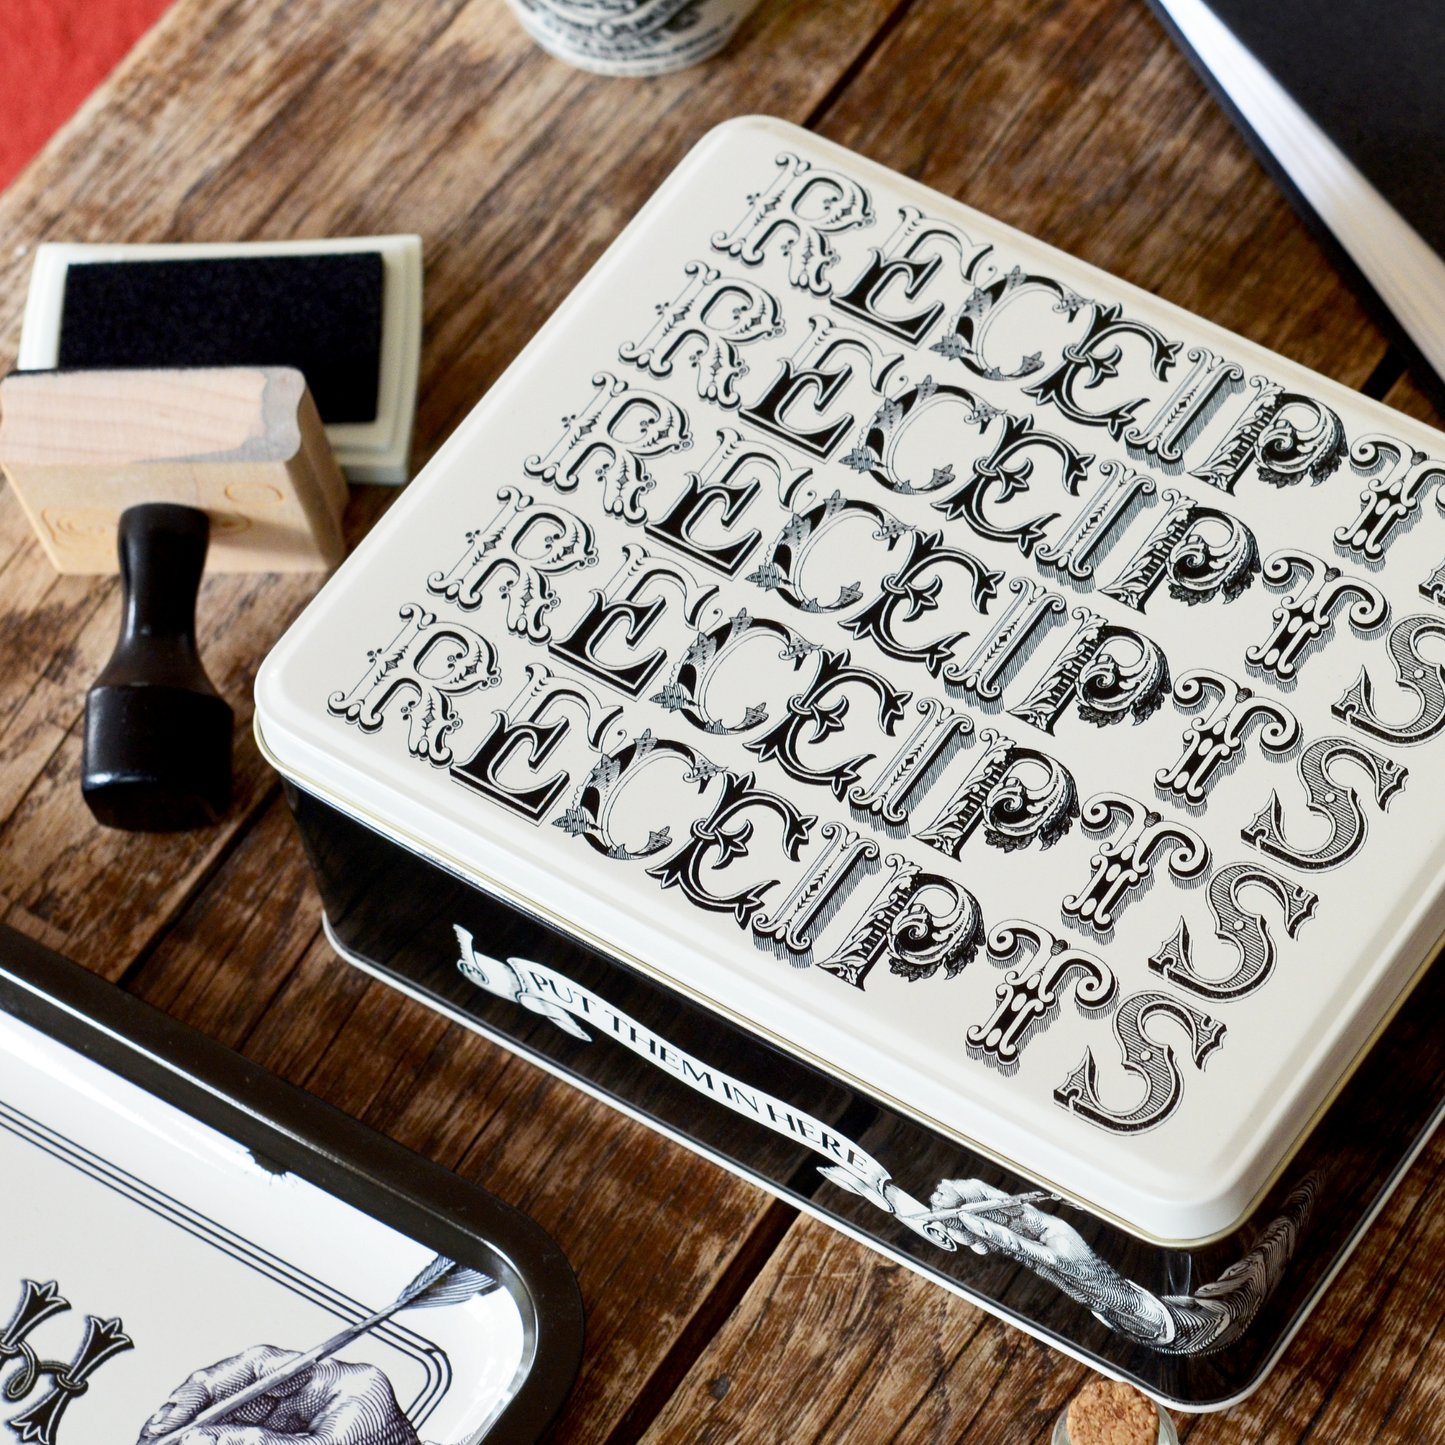 RECEIPTS
RECEIPTS
RECEIPTS
RECEIPTS
RECEIPTS
PUT THEM IN HERE